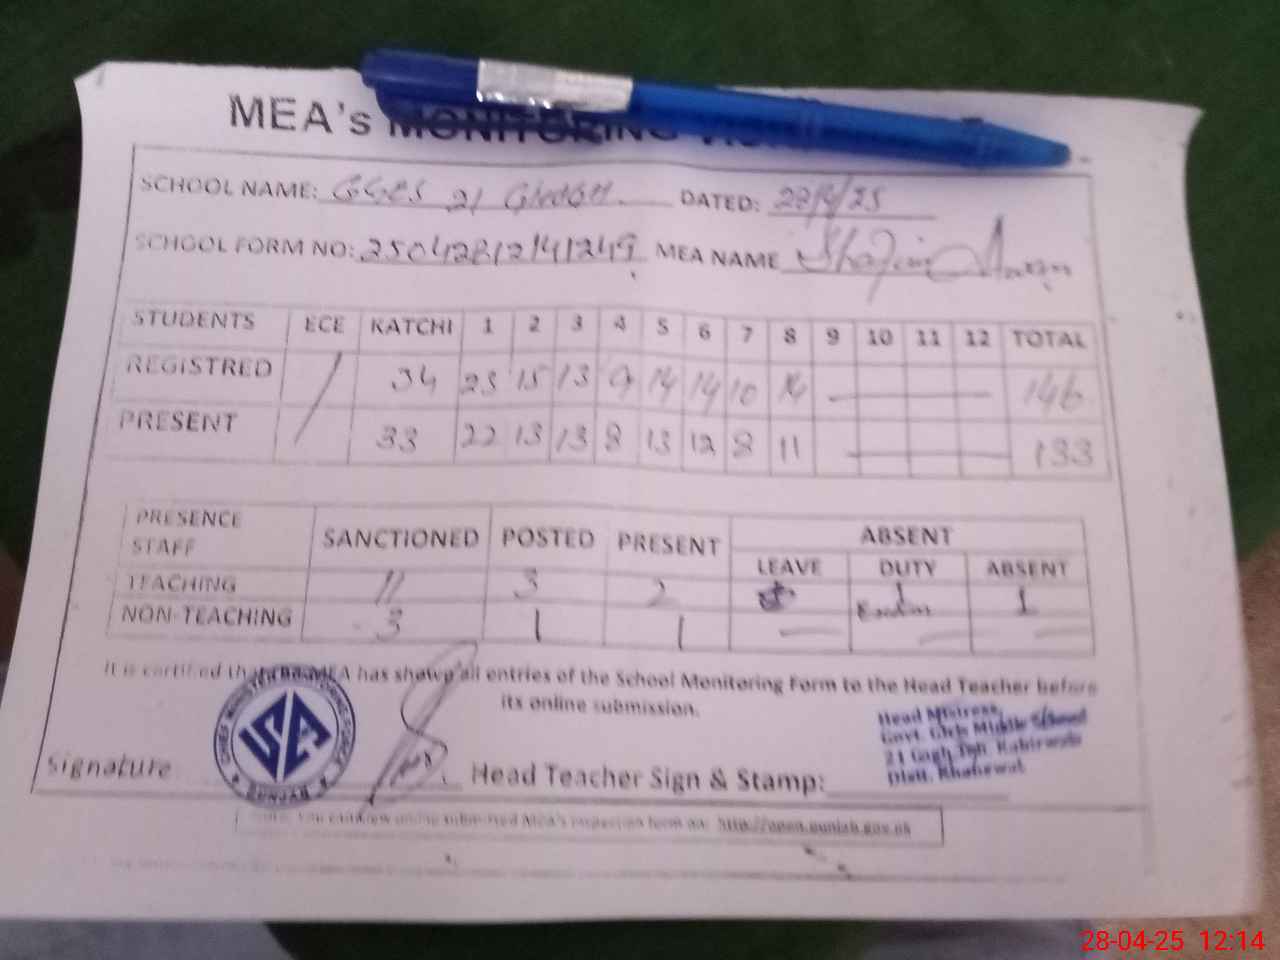 MEA's MONITORING
SCHOOL NAME: GGES 21 GHAGH. DATED: 28/4/25
SCHOOL FORM NO: 25042812141249 MEA NAME
STUDENTS ECE KATCHI 1 2 3 4 5 6 7 8 9 10 11 12 TOTAL
REGISTRED 34 23 15 13 9 14 14 10 14 146
PRESENT 33 22 13 13 8 13 12 8 11 133
PRESENCE STAFF SANCTIONED POSTED PRESENT ABSENT
LEAVE DUTY ABSENT
TEACHING 11 3 2 1 Exam 1
NON-TEACHING 3 1 1 — — —
It is certified that the MEA has shown all entries of the School Monitoring Form to the Head Teacher before
its online submission.
Head Mistress,
Govt. Girls Middle School
21 Gagh Teh. Kabirwala
Distt. Khanewal
Signature Head Teacher Sign & Stamp:
CHIEF MINISTER'S MONITORING FORCE
PUNJAB
Note: You can view online submitted MEA's inspection form on: http://open.punjab.gov.pk
28-04-25 12:14